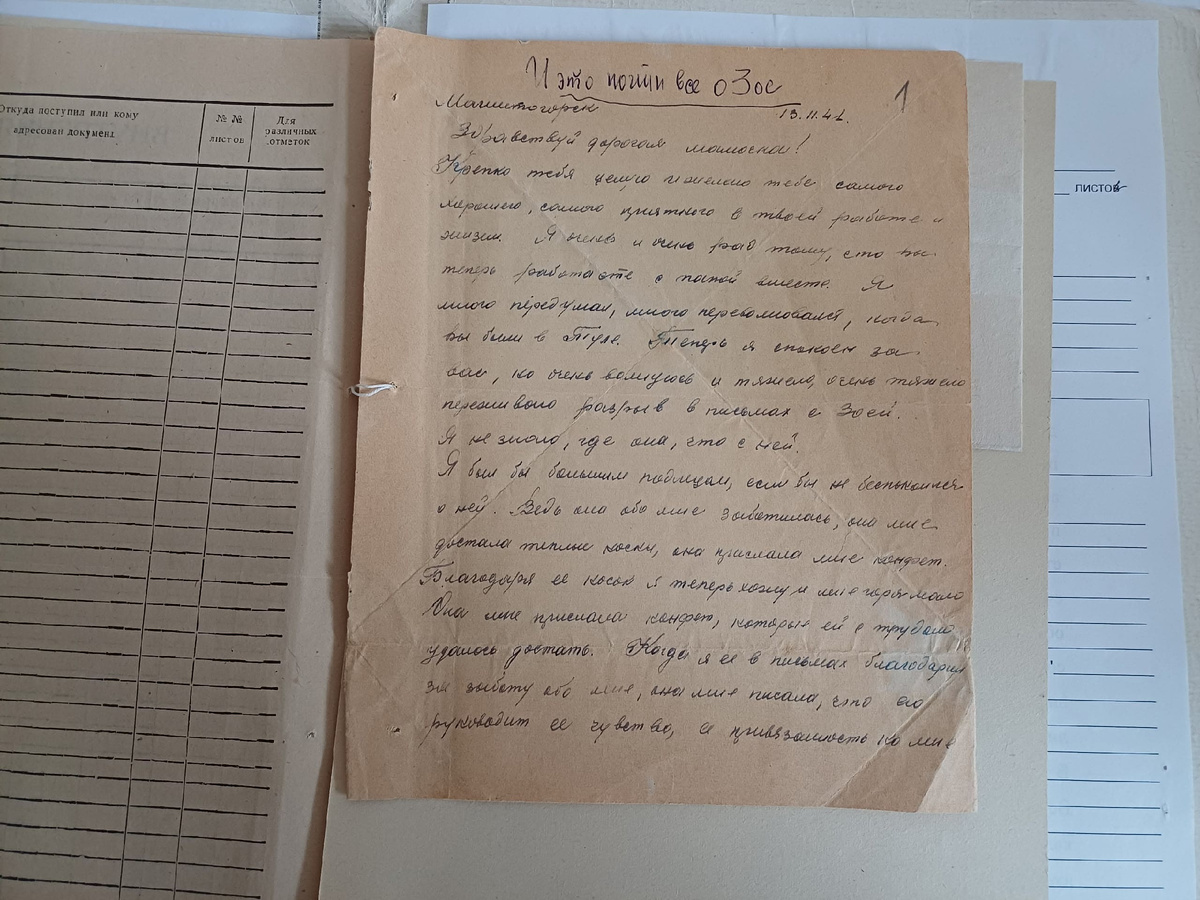 Откуда поступил или кому адресован документ
№ № листов
Для различных отметок
листов
И это почти все о Зое
1
Магнитогорск 13.11.41.
Здравствуй дорогая мамочка!
Крепко тебя целую и желаю тебе самого
хорошего, самого приятного в твоей работе и
жизни. Я очень и очень рад тому, что вы
теперь работаете с папой вместе. Я
много передумал, много переволновался, когда
вы были в Туле. Теперь я спокоен за
вас, но очень волнуюсь и тяжело, очень тяжело
переживаю разрыв в письмах с Зоей.
Я не знаю, где она, что с ней.
Я был бы большим подлецом, если бы не беспокоился
о ней. Ведь она обо мне заботилась, она мне
достала теплые носки, она прислала мне конфет.
Благодаря ее носок я теперь хожу и мне горя мало
Она мне прислала конфет, которые ей с трудом
удалось достать. Когда я ее в письмах благодарил
за заботу обо мне, она мне писала, что ею
руководит ее чувство, ее привязанность ко мне